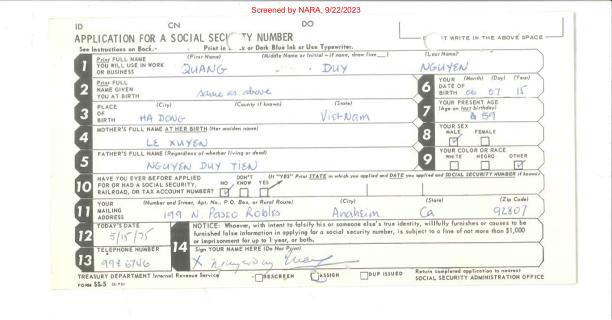 Screened by NARA, 9/22/2023
ID CN DO
APPLICATION FOR A SOCIAL SECURITY NUMBER
IT WRITE IN THE ABOVE SPACE
See Instructions on Back. Print in or Dark Blue Ink or Use Typewriter.
1 Print FULL NAME YOU WILL USE IN WORK OR BUSINESS (First Name) (Middle Name or Initial – if none, draw line) (Last Name)
QUANG DUY NGUYEN
2 Print FULL NAME GIVEN YOU AT BIRTH
same as above
6 YOUR DATE OF BIRTH (Month) (Day) (Year)
06 07 15
3 PLACE OF BIRTH (City) (County if known) (State)
HA DONG VietNam
7 YOUR PRESENT AGE (Age on last birthday)
59
4 MOTHER'S FULL NAME AT HER BIRTH (Her maiden name)
LE XUYEN
8 YOUR SEX MALE FEMALE
5 FATHER'S FULL NAME (Regardless of whether living or dead)
NGUYEN DUY TIEN
9 YOUR COLOR OR RACE WHITE NEGRO OTHER
10 HAVE YOU EVER BEFORE APPLIED FOR OR HAD A SOCIAL SECURITY, RAILROAD, OR TAX ACCOUNT NUMBER? NO DON'T KNOW YES (If "YES" Print STATE in which you applied and DATE you applied and SOCIAL SECURITY NUMBER if known)
11 YOUR MAILING ADDRESS (Number and Street, Apt. No., P.O. Box, or Rural Route) (City) (State) (Zip Code)
199 N. Paseo Robles Anaheim Ca 92807
12 TODAY'S DATE
5/15/75
NOTICE: Whoever, with intent to falsify his or someone else's true identity, willfully furnishes or causes to be furnished false information in applying for a social security number, is subject to a fine of not more than $1,000 or imprisonment for up to 1 year, or both.
13 TELEPHONE NUMBER
998 6746
14 Sign YOUR NAME HERE (Do Not Print)
X
TREASURY DEPARTMENT Internal Revenue Service RESCREEN ASSIGN DUP ISSUED Return completed application to nearest SOCIAL SECURITY ADMINISTRATION OFFICE
FORM SS-5